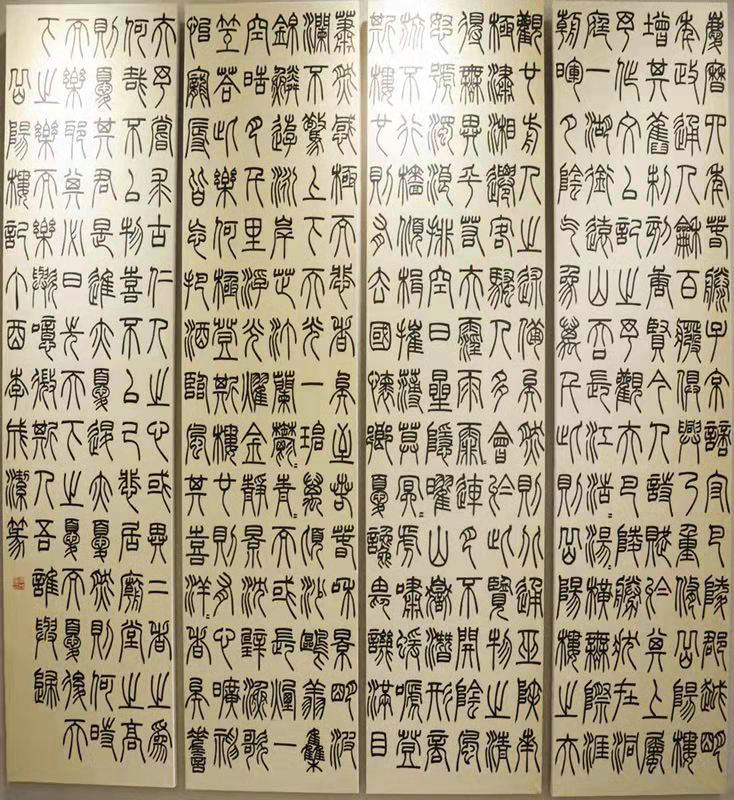 慶曆四年春滕子京謫守巴陵郡越明
年政通人和百廢俱興乃重修岳陽樓
增其舊制刻唐賢今人詩賦於其上屬
予作文以記之予觀夫巴陵勝狀在洞
庭一湖銜遠山吞長江浩〻湯〻橫無際涯
朝暉夕陰氣象萬千此則岳陽樓之大
觀也前人之述備矣然則北通巫峽南
極瀟湘遷客騷人多會於此覽物之情
得無異乎若夫霪雨霏〻連月不開陰風
怒號濁浪排空日星隱曜山嶽潛形商
旅不行檣傾楫摧薄暮冥〻虎嘯猿啼登
斯樓也則有去國懷鄉憂讒畏譏滿目
蕭然感極而悲者矣至若春和景明波
瀾不驚上下天光一碧萬頃沙鷗翔集
錦鱗游泳岸芷汀蘭鬱〻青〻而或長煙一
空皓月千里浮光耀金靜影沈璧漁歌
互答此樂何極登斯樓也則有心曠神
怡寵辱皆忘把酒臨風其喜洋〻者矣嗟
夫予嘗求古仁人之心或異二者之為
何哉不以物喜不以己悲居廟堂之高
則憂其君是進亦憂退亦憂然則何時
而樂耶其必曰先天下之憂而憂後天
下之樂而樂歟噫微斯人吾誰與歸
岳陽樓記 西李成潔篆